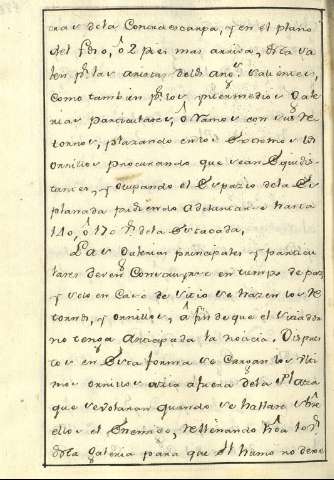 ras de la Contraescarpa, y en el plano
del foso, ô 2 pies mas arriva, esta sa
len p.r las arcas de los ang.s salientes,
como tambien p.r los yntermedios Gale
rias particulares, ô Ramos con sus Re
tornos, plazando en los Extremos los
ornillos procurando que sean Equidis
tantes, y ocupando el Espazio de la Es
planada pudiendo adelantarse hasta
110 ô 120 p.s de la Estacada,
Las Galerias principales y particu
lares deven Construyrse en tiempo de paz
y solo en Caso de sitio se hazen los Re
tornos, y ornillos, â fin de que el sitiador
no tenga anticipada la noticia. Dispues
tos en Esta forma se Cargan los Ulti
mos ornillos azia afuera de la Plaza
que se volaran quando se hallare sôre
ellos el Enemigo, rellenando
de la Galeria para que el humo no dexe